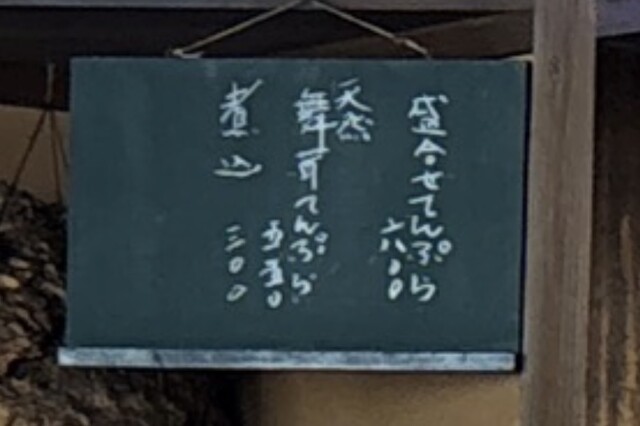 盛合せてんぷら
六〇〇
天然
舞茸てんぷら
五五〇
煮込
三〇〇